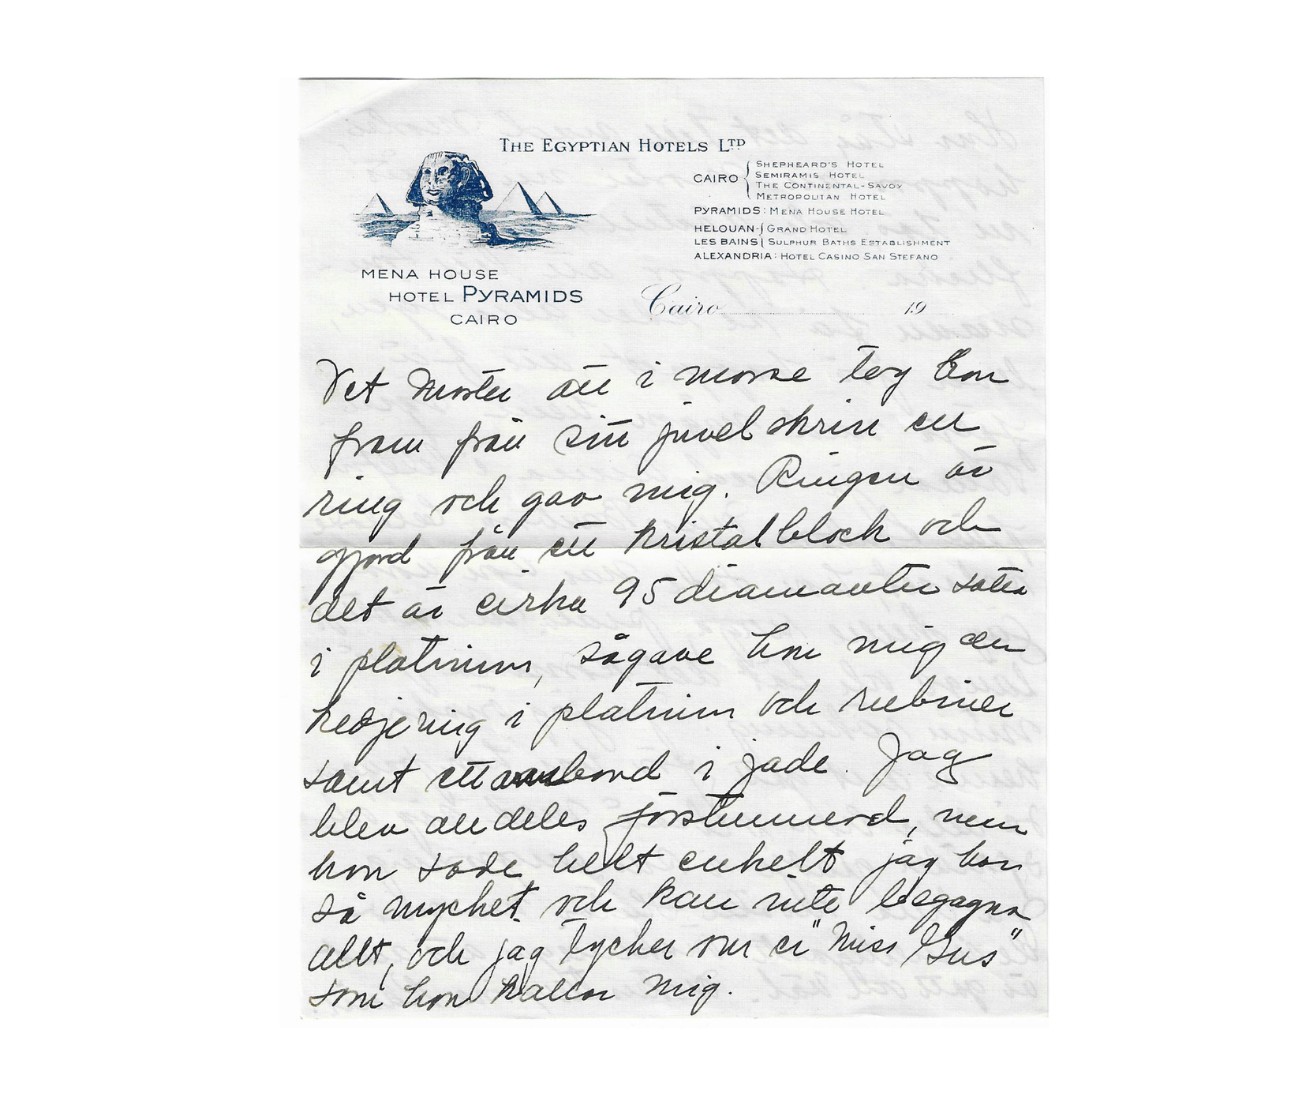 THE EGYPTIAN HOTELS LTD
CAIRO { SHEPHEARD'S HOTEL
SEMIRAMIS HOTEL
THE CONTINENTAL-SAVOY
METROPOLITAN HOTEL
PYRAMIDS: MENA HOUSE HOTEL
HELOUAN { GRAND HOTEL
LES BAINS { SULPHUR BATHS ESTABLISHMENT
ALEXANDRIA: HOTEL CASINO SAN STEFANO
MENA HOUSE
HOTEL PYRAMIDS
CAIRO
Cairo 19
Vet Moster att i morse tog hon
fram från sitt juvelskrin en
ring och gav mig. Ringen är
gjord från ett kristalblock och
det är cirka 95 diamanter
i platinum, så gave hon mig en
kedjering i platinum och rubiner
samt ett armbond i jade. Jag
blev alldeles förstummerd, men
hon sade helt enkelt jag har
så mycket och kan inte begagna
allt, och jag tycker om er "Miss Gus"
som hon kallar mig.